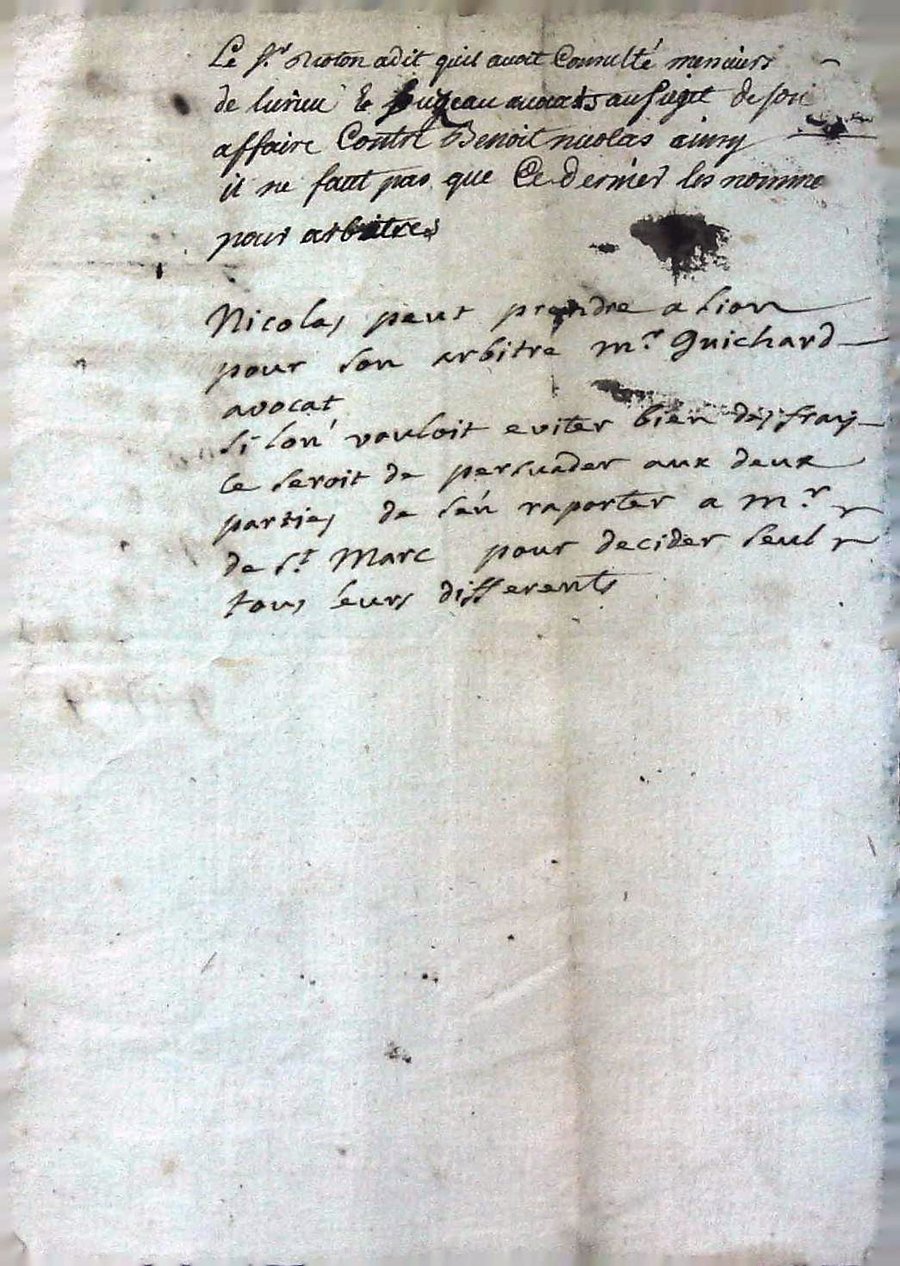 Le Sr. adit quil avoit Consulté messieurs
de lurieu & avocats au sujet de son
affaire Contre Benoit nicolas
il ne faut pas que Ce dernier les nomme
pour arbitres
Nicolas peut prendre a Lion
pour son arbitre mr. Guichard
avocat
Si lon vouloit eviter bien des frais
ce seroit de persuader aux deux
parties de sen raporter a mr
de St Marc pour decider seul
tous leurs differents